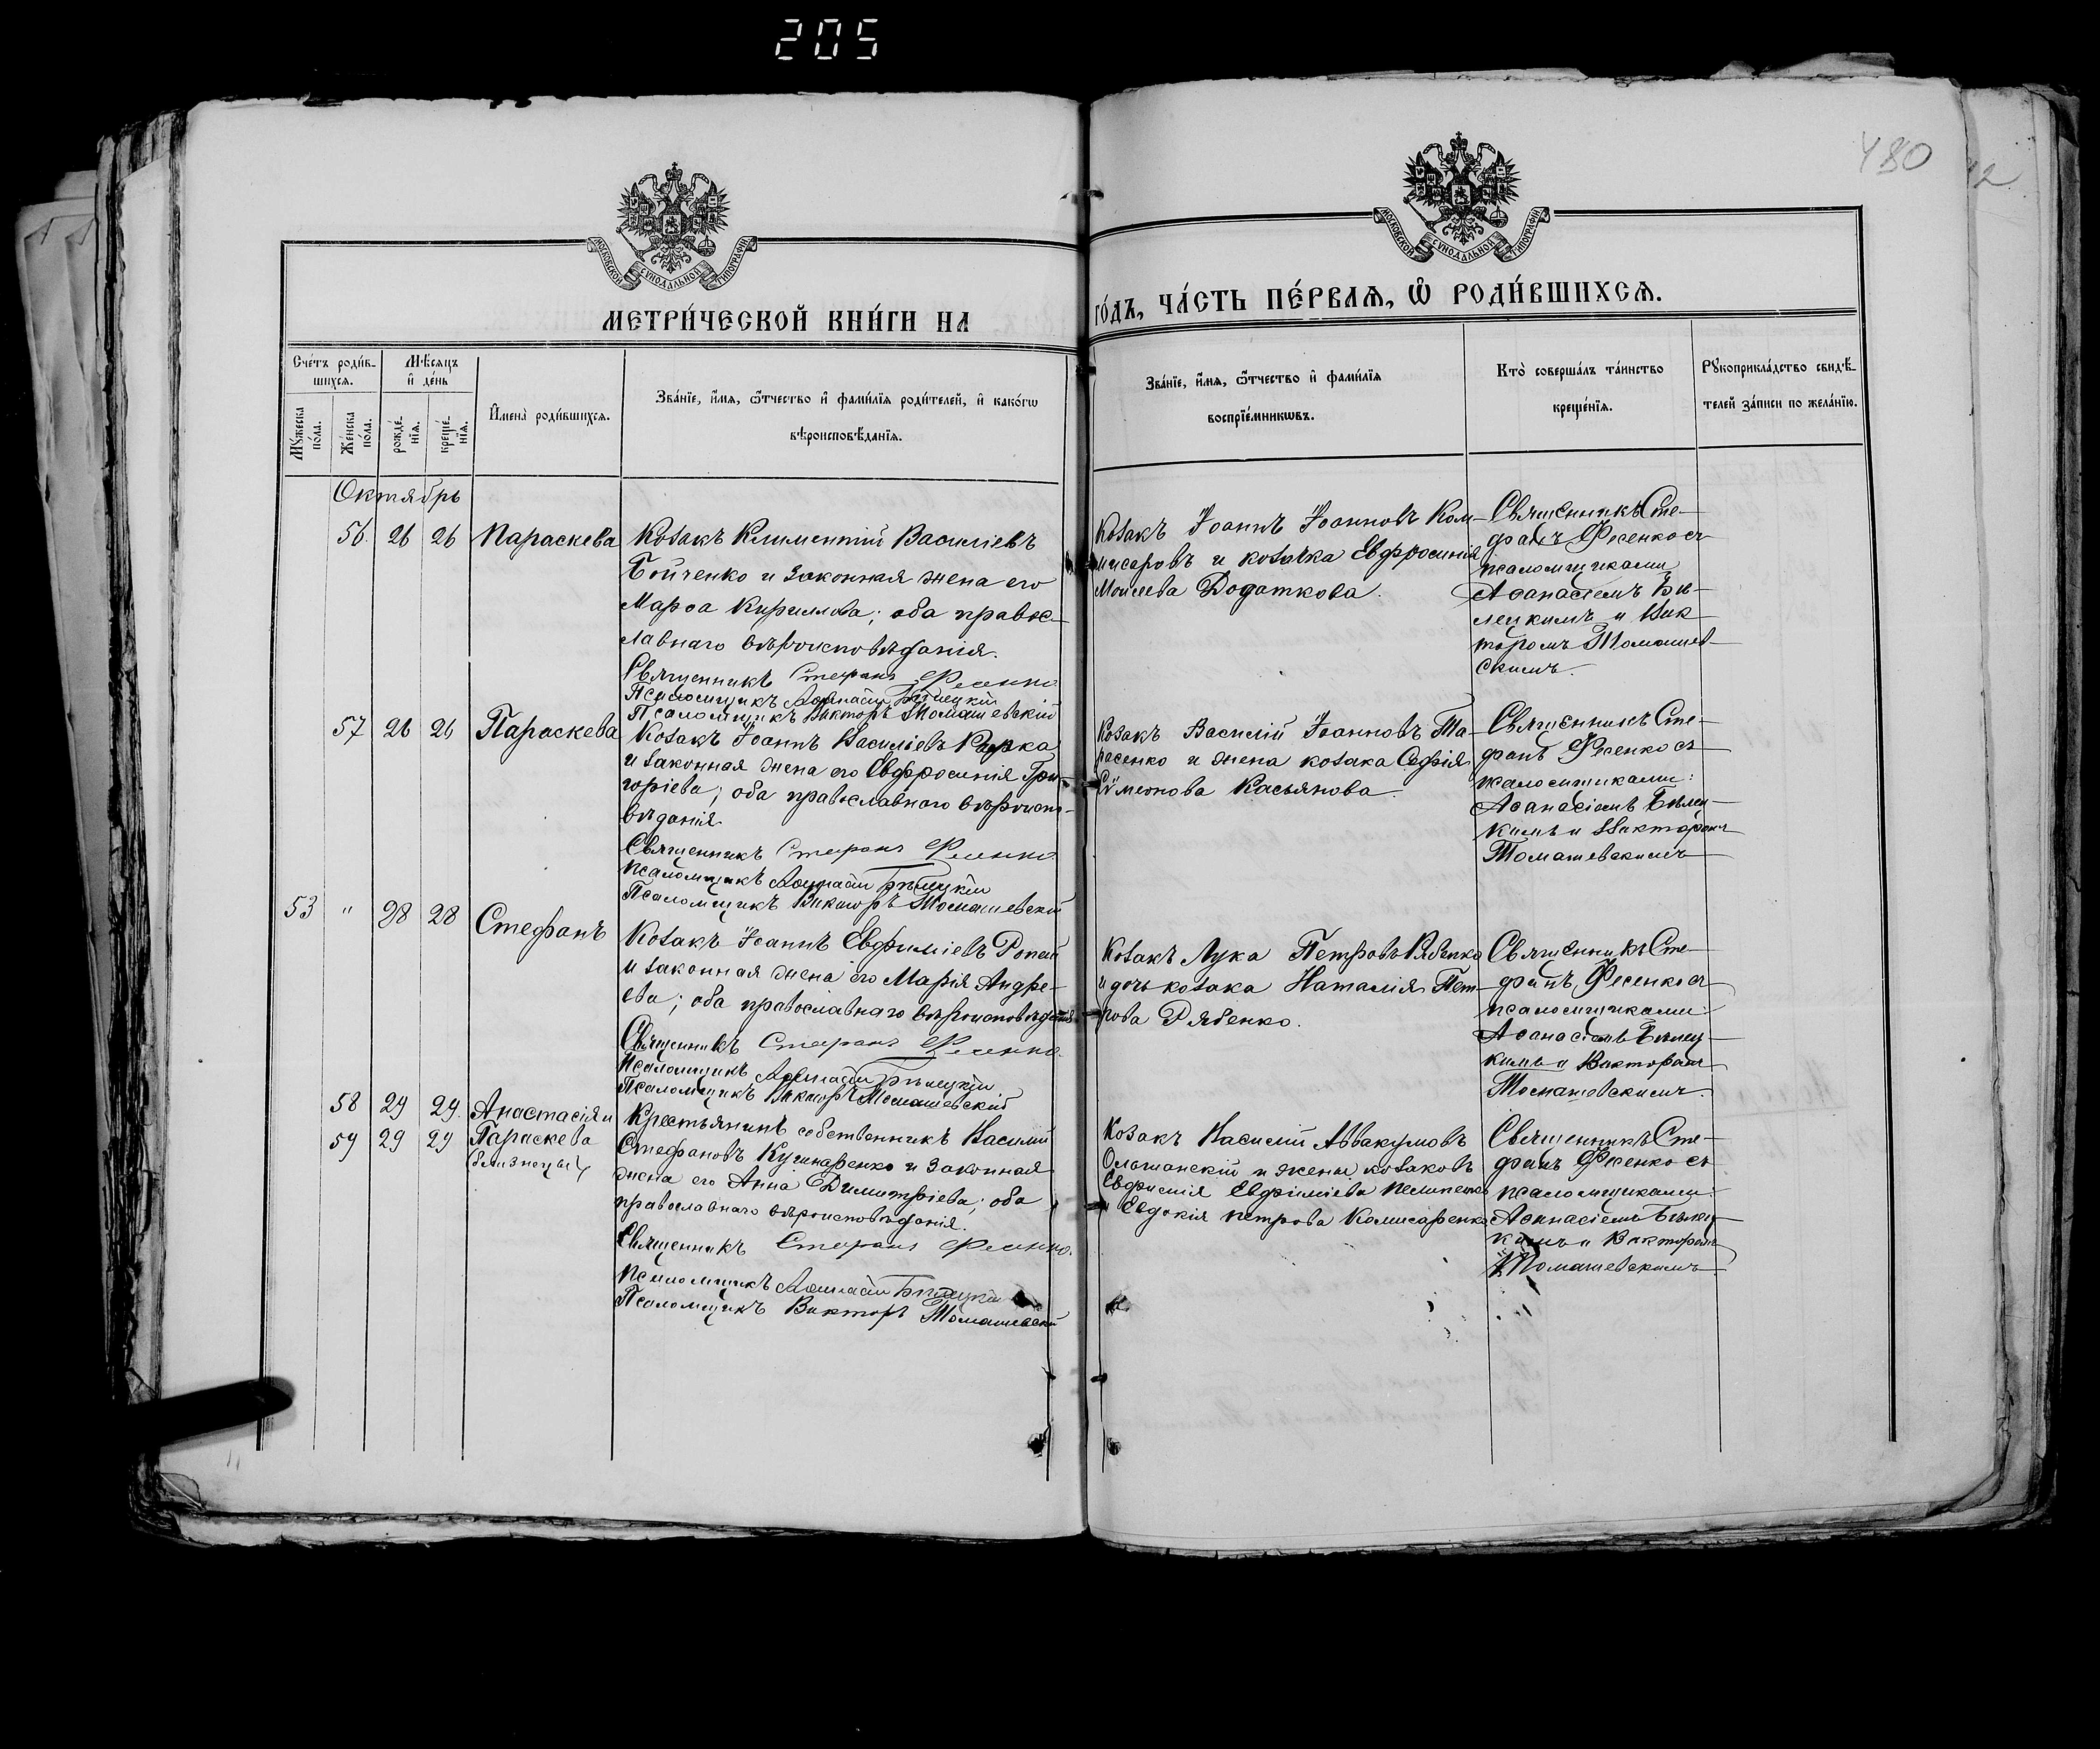 205
480
12
МОСКОВСКОЙ СУНОДАЛЬНОЙ ТИПОГРАФІИ
МОСКОВСКОЙ СУНОДАЛЬНОЙ ТИПОГРАФІИ
МЕТРИ́ЧЕСКОЙ КНИ́ГИ НА
ГО́ДЪ, ЧА́СТЬ ПЕ́РВАѦ, Ѡ҆ РОДИ́ВШИХСѦ.
Сче́тъ роди́в-
шихсѧ.
Мѣ́сѧцъ
и҆ де́нь
Мꙋ́жеска
по́ла.
Же́нска
по́ла.
рожде́-
нїѧ.
креще́-
нїѧ.
И҆мена̀ роди́вшихсѧ.
Зва́нїе, и҆́мѧ, ѻ҆́тчество и҆ фами́лїѧ роди́телей, и҆ како́гѡ
вѣроисповѣ́данїѧ.
Зва́нїе, и҆́мѧ, ѻ҆́тчество и҆ фами́лїѧ
воспрїе́мникѡвъ.
Кто̀ соверша́лъ та́инство
креще́нїѧ.
Рꙋкоприкла́дство свидѣ́-
телей за́писи по жела́нїю.
Октябрь
56. 26 26 Параскева
Козакъ Климентій Василіевъ
Бойченко и законная жена его
Марѳа Кириллова; оба правос-
лавнаго вѣроисповѣданія.
Священникъ Стефанъ Фесенко
Псаломщикъ Аѳанасій Бѣлецкій
Псаломщикъ Викторъ Томашевскій
Козакъ Іоаннъ Іоанновъ Ком-
мисаровъ и козачка Евфросинія
Моисеева Додаткова.
Священникъ Сте-
фанъ Фесенко съ
псаломщиками
Аѳанасіемъ Бѣ-
лецкимъ и Вик-
торомъ Томашев-
скимъ.
57 26 26 Параскева
Козакъ Іоаннъ Василіевъ
и законная жена его Евфросинія Гри-
горіева; оба православнаго вѣроиспо-
вѣданія
Священникъ Стефанъ Фесенко
Псаломщикъ Аѳанасій Бѣлецкій
Псаломщикъ Викторъ Томашевскій
Козакъ Василій Іоанновъ Та-
расенко и жена козака Софія
Сѵмеонова Касьянова.
Священникъ Сте-
фанъ Фесенко съ
псаломщиками:
Аѳанасіемъ Бѣлец-
кимъ и Викторомъ
Томашевскимъ
53 " 28 28 Стефанъ
Козакъ Іоаннъ Евфиміевъ Ропай
и законная жена его Марія Андре-
ева; оба православнаго вѣроисповѣданія
Священникъ Стефанъ Фесенко.
Псаломщикъ Аѳанасій Бѣлецкій
Псаломщикъ Викторъ Томашевскій
Козакъ Лука Петровъ Рябенко
и дочь козака Наталія Пет-
рова Рябенко.
Священникъ Сте-
фанъ Фесенко съ
псаломщиками:
Аѳанасіемъ Бѣлец-
кимъ и Викторомъ
Томашевскимъ.
58 29 29. Анастасія и
59 29 29 Параскева
(близнецы)
Крестьянинъ собственникъ Василій
Стефановъ Кушнаренко и законная
жена его Анна Димитріева; оба
православнаго вѣроисповѣданія.
Священникъ Стефанъ Фесенко.
Псаломщикъ Аѳанасій Бѣлецкій
Псаломщикъ Викторъ Томашевскій
Козакъ Василій Аввакумовъ
Ольшанскій и жены козаковъ
Евфимія Евфиміева
и Евдокія Петрова Комисаренко
Священникъ Сте-
фанъ Фесенко съ
псаломщиками:
Аѳанасіемъ Бѣлец-
кимъ и Викторомъ
Томашевскимъ.